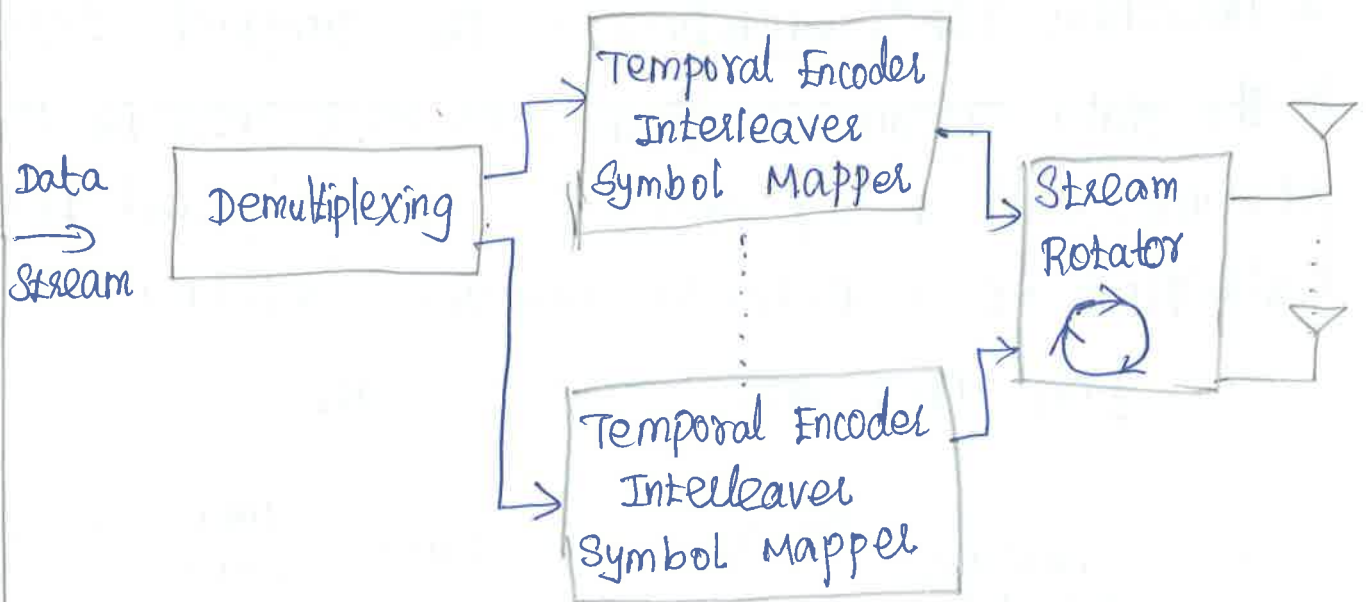 Data
Stream
Demultiplexing
Temporal Encoder
Interleaver
Symbol Mapper
Temporal Encoder
Interleaver
Symbol Mapper
Stream
Rotator